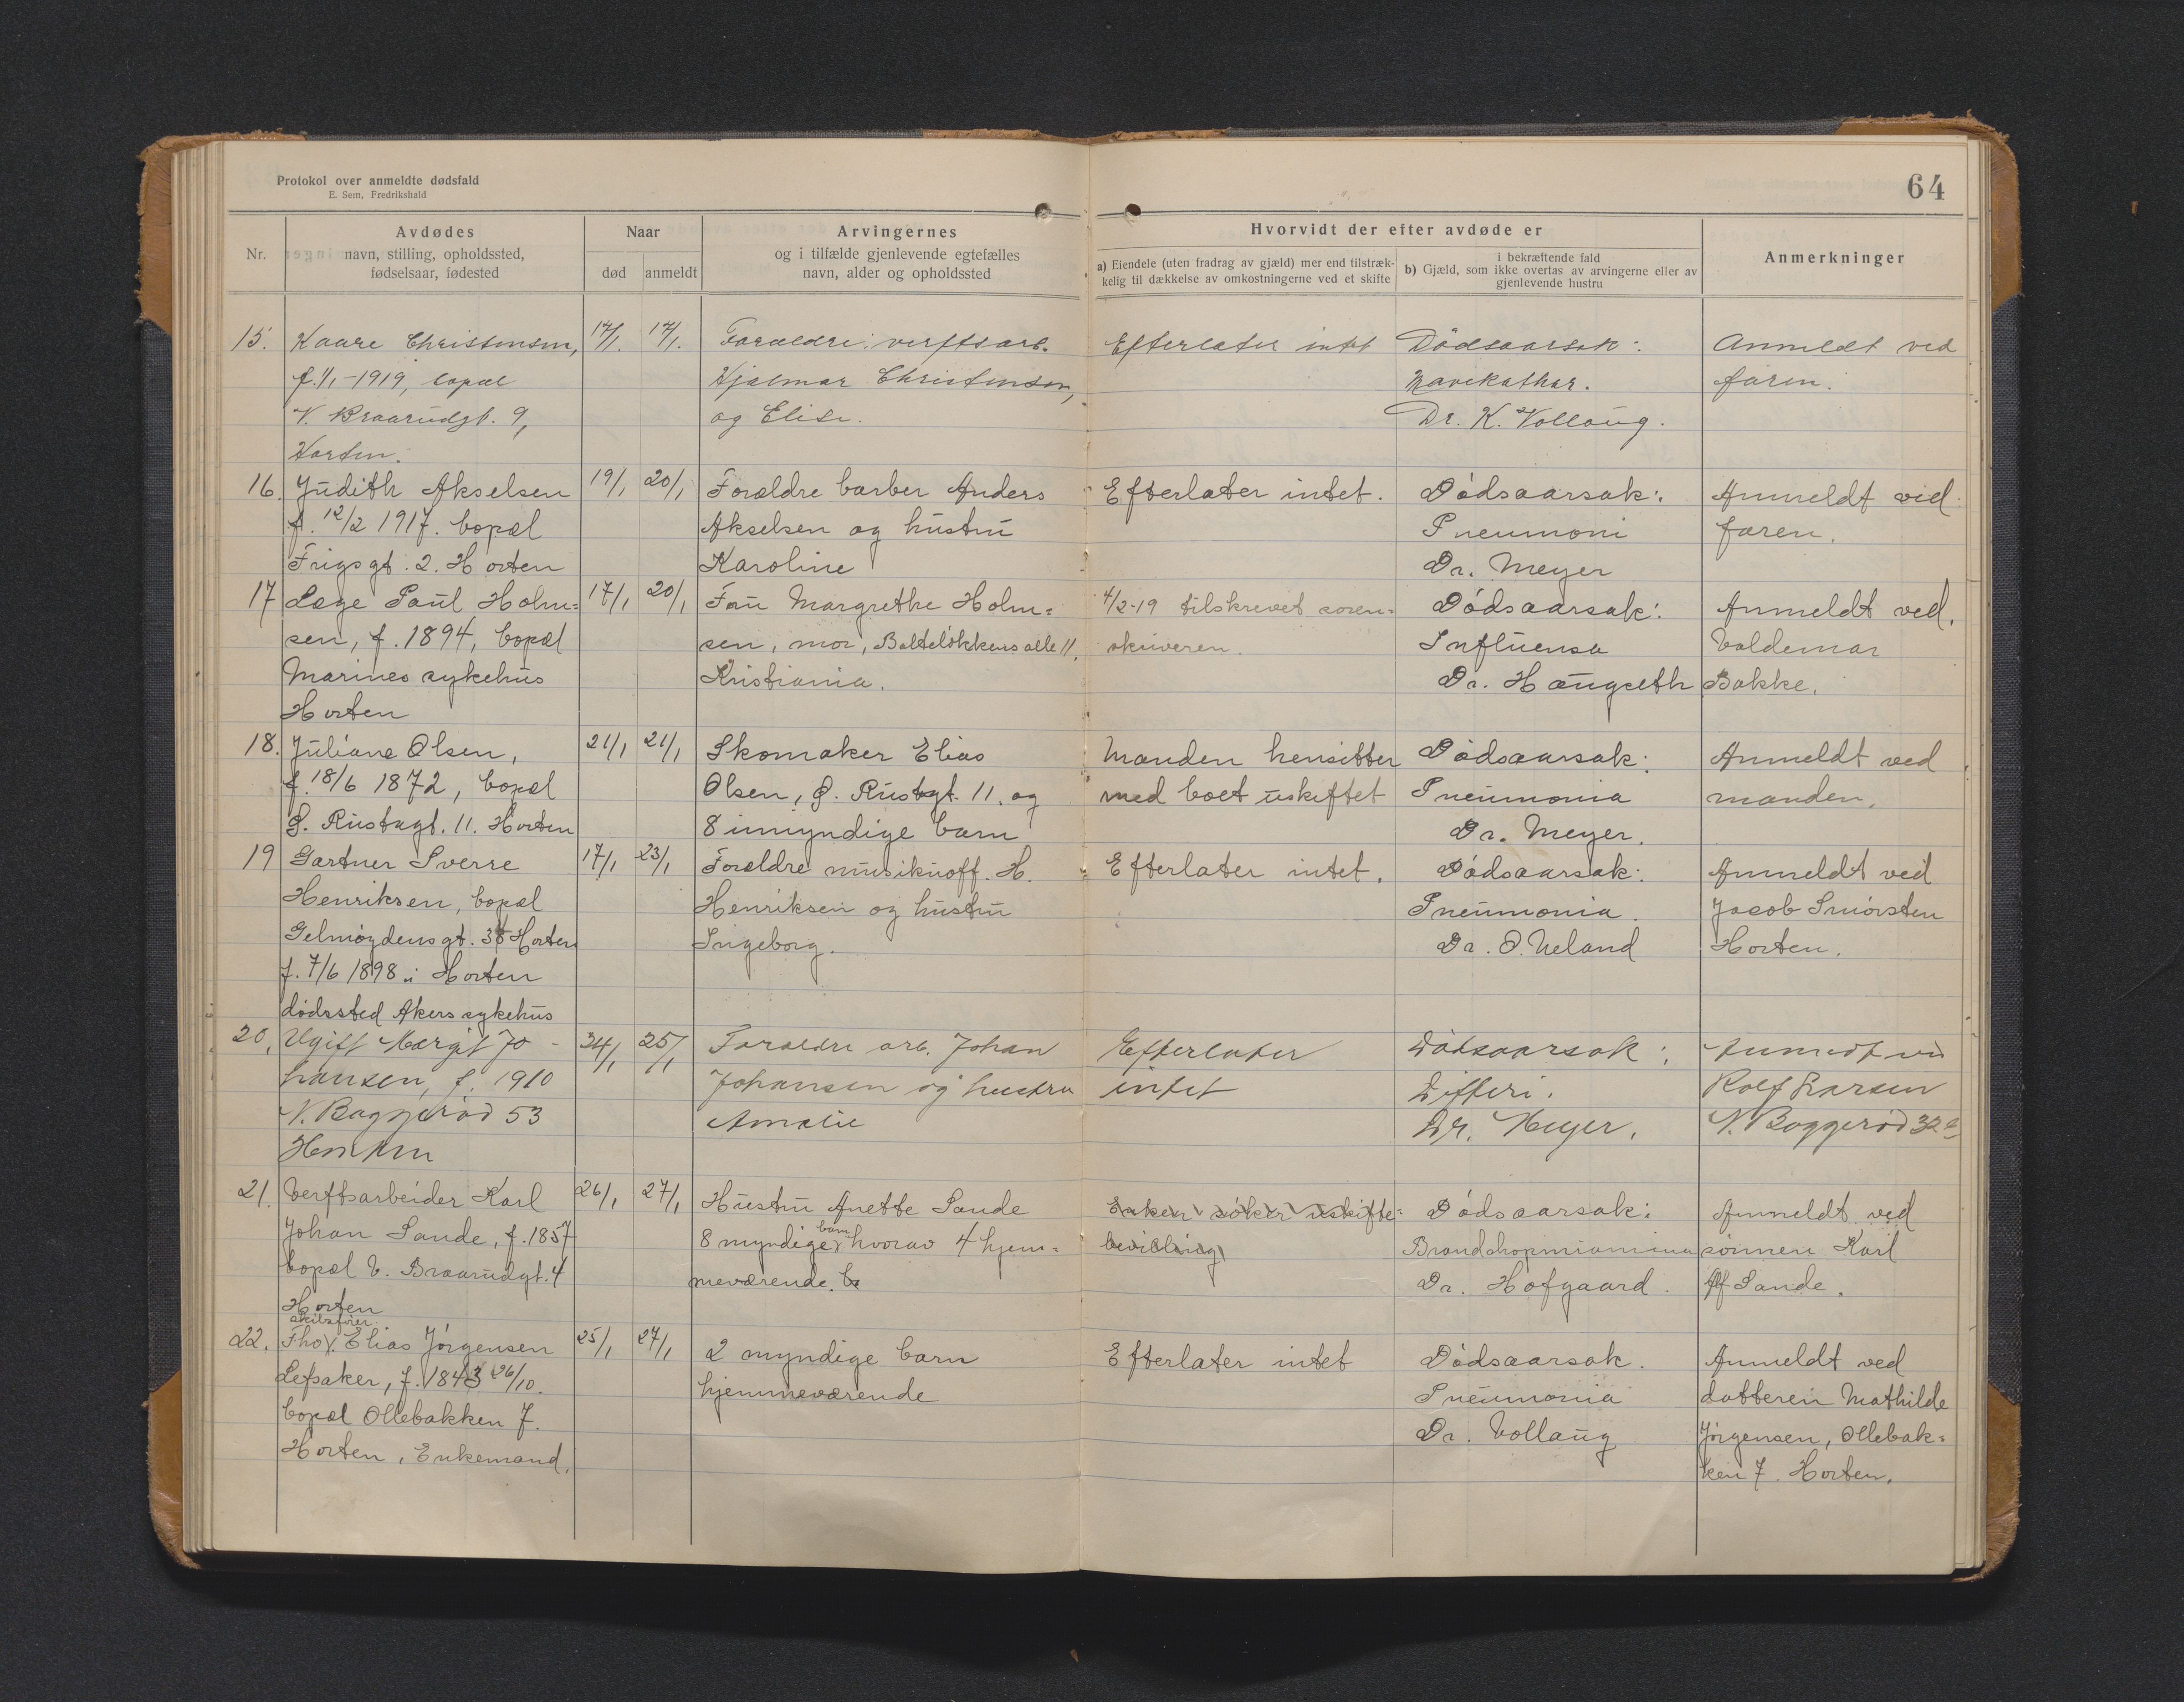 Protokol over anmeldte dødsfald
E. Sem, Fredrikshald
64
Nr.
Avdødes
navn, stilling, opholdssted,
fødselsaar, fødested
Naar
død
anmeldt
Arvingernes
og i tilfælde gjenlevende egtefælles
navn, alder og opholdssted
Hvorvidt der efter avdøde er
a) Eiendele (uten fradrag av gjæld) mer end tilstræk-
kelig til dækkelse av omkostningerne ved et skifte
i bekræftende fald
b) Gjæld, som ikke overtas av arvingerne eller av
gjenlevende hustru
Anmerkninger
15.
Kaare Christensen,
f. 1/1-1919, bopæl
V. Braarudgt. 9,
Horten.
17/1.
17/1.
Forældre: verftsarb.
Hjalmar Christensen,
og Elise.
Efterlater intet
Dødsaarsak:
Mavekathar.
Dr. K. Vollaug.
Anmeldt ved
faren.
16.
Judith Akselsen
f. 12/2 1917. bopæl
Frigsgt. 2. Horten
19/1
20/1
Forældre barber Anders
Akselsen og hustru
Karoline
Efterlater intet.
Dødsaarsak:
Pneumoni
Dr. Meyer
Anmeldt ved
faren.
17
Læge Paul Holm=
sen, f. 1894, bopæl
Marines sykehus
Horten
17/1
20/1
Fru Margrethe Holm=
sen, mor, Balteløkkens alle 11,
Kristiania.
4/2-19 tilskrevet soren=
skriveren.
Dødsaarsak:
Influensa
Dr. Haugseth
Anmeldt ved.
Valdemar
Bakke.
18.
Juliane Olsen,
f. 18/6 1872, bopæl
P. Rustugt. 11. Horten
21/1
21/1
Skomaker Elias
Olsen, P. Rustugt. 11. og
8 umyndige barn
Manden hensitter
med boet uskiftet
Dødsaarsak:
Pneumonia
Dr. Meyer.
Anmeldt ved
manden.
19
Gartner Sverre
Henriksen, bopæl
Gelmøydensgt. 38 Horten
f. 7/6 1898 i Horten
dødssted Akers sykehus
17/1
23/1
Forældre musikuoff. H.
Henriksen og hustru
Ingeborg.
Efterlater intet.
Dødsaarsak:
Pneumonia.
Dr. O. Ueland
Anmeldt ved
Jacob Smørsten
Horten.
20.
Ugift Margit Jo-
hansen, f. 1910
N. Baggerød 53
24/1
25/1
Forældre arb. Johan
Johansen og hustru
Amalie
Efterlater
intet
Dødsaarsak:
Difteri.
Dr. Meyer.
Anmeldt ved
Rolf Larsen
N. Baggerød 32
21.
Verftsarbeider Karl
Johan Sande, f. 1857
bopæl V. Braarudgt. 4
Horten
26/1
27/1
Hustru Anette Sande
8 myndige barn hvorav 4 hjem=
meværende. b
Enken søker uskifte=
bevilling
Dødsaarsak:
Dr. Hofgaard.
Anmeldt ved
sønnen Karl
Alf Sande.
22.
skibsfører
Thov. Elias Jørgensen
Lefsaker, f. 1843 26/10.
bopæl Ollebakken 7.
Horten, Enkemand.
25/1
27/1
2 myndige barn
hjemmeværende
Efterlater intet
Dødsaarsak.
Pneumonia
Dr. Vollaug
Anmeldt ved
datteren Mathilde
Jørgensen, Ollebak=
ken 7. Horten.